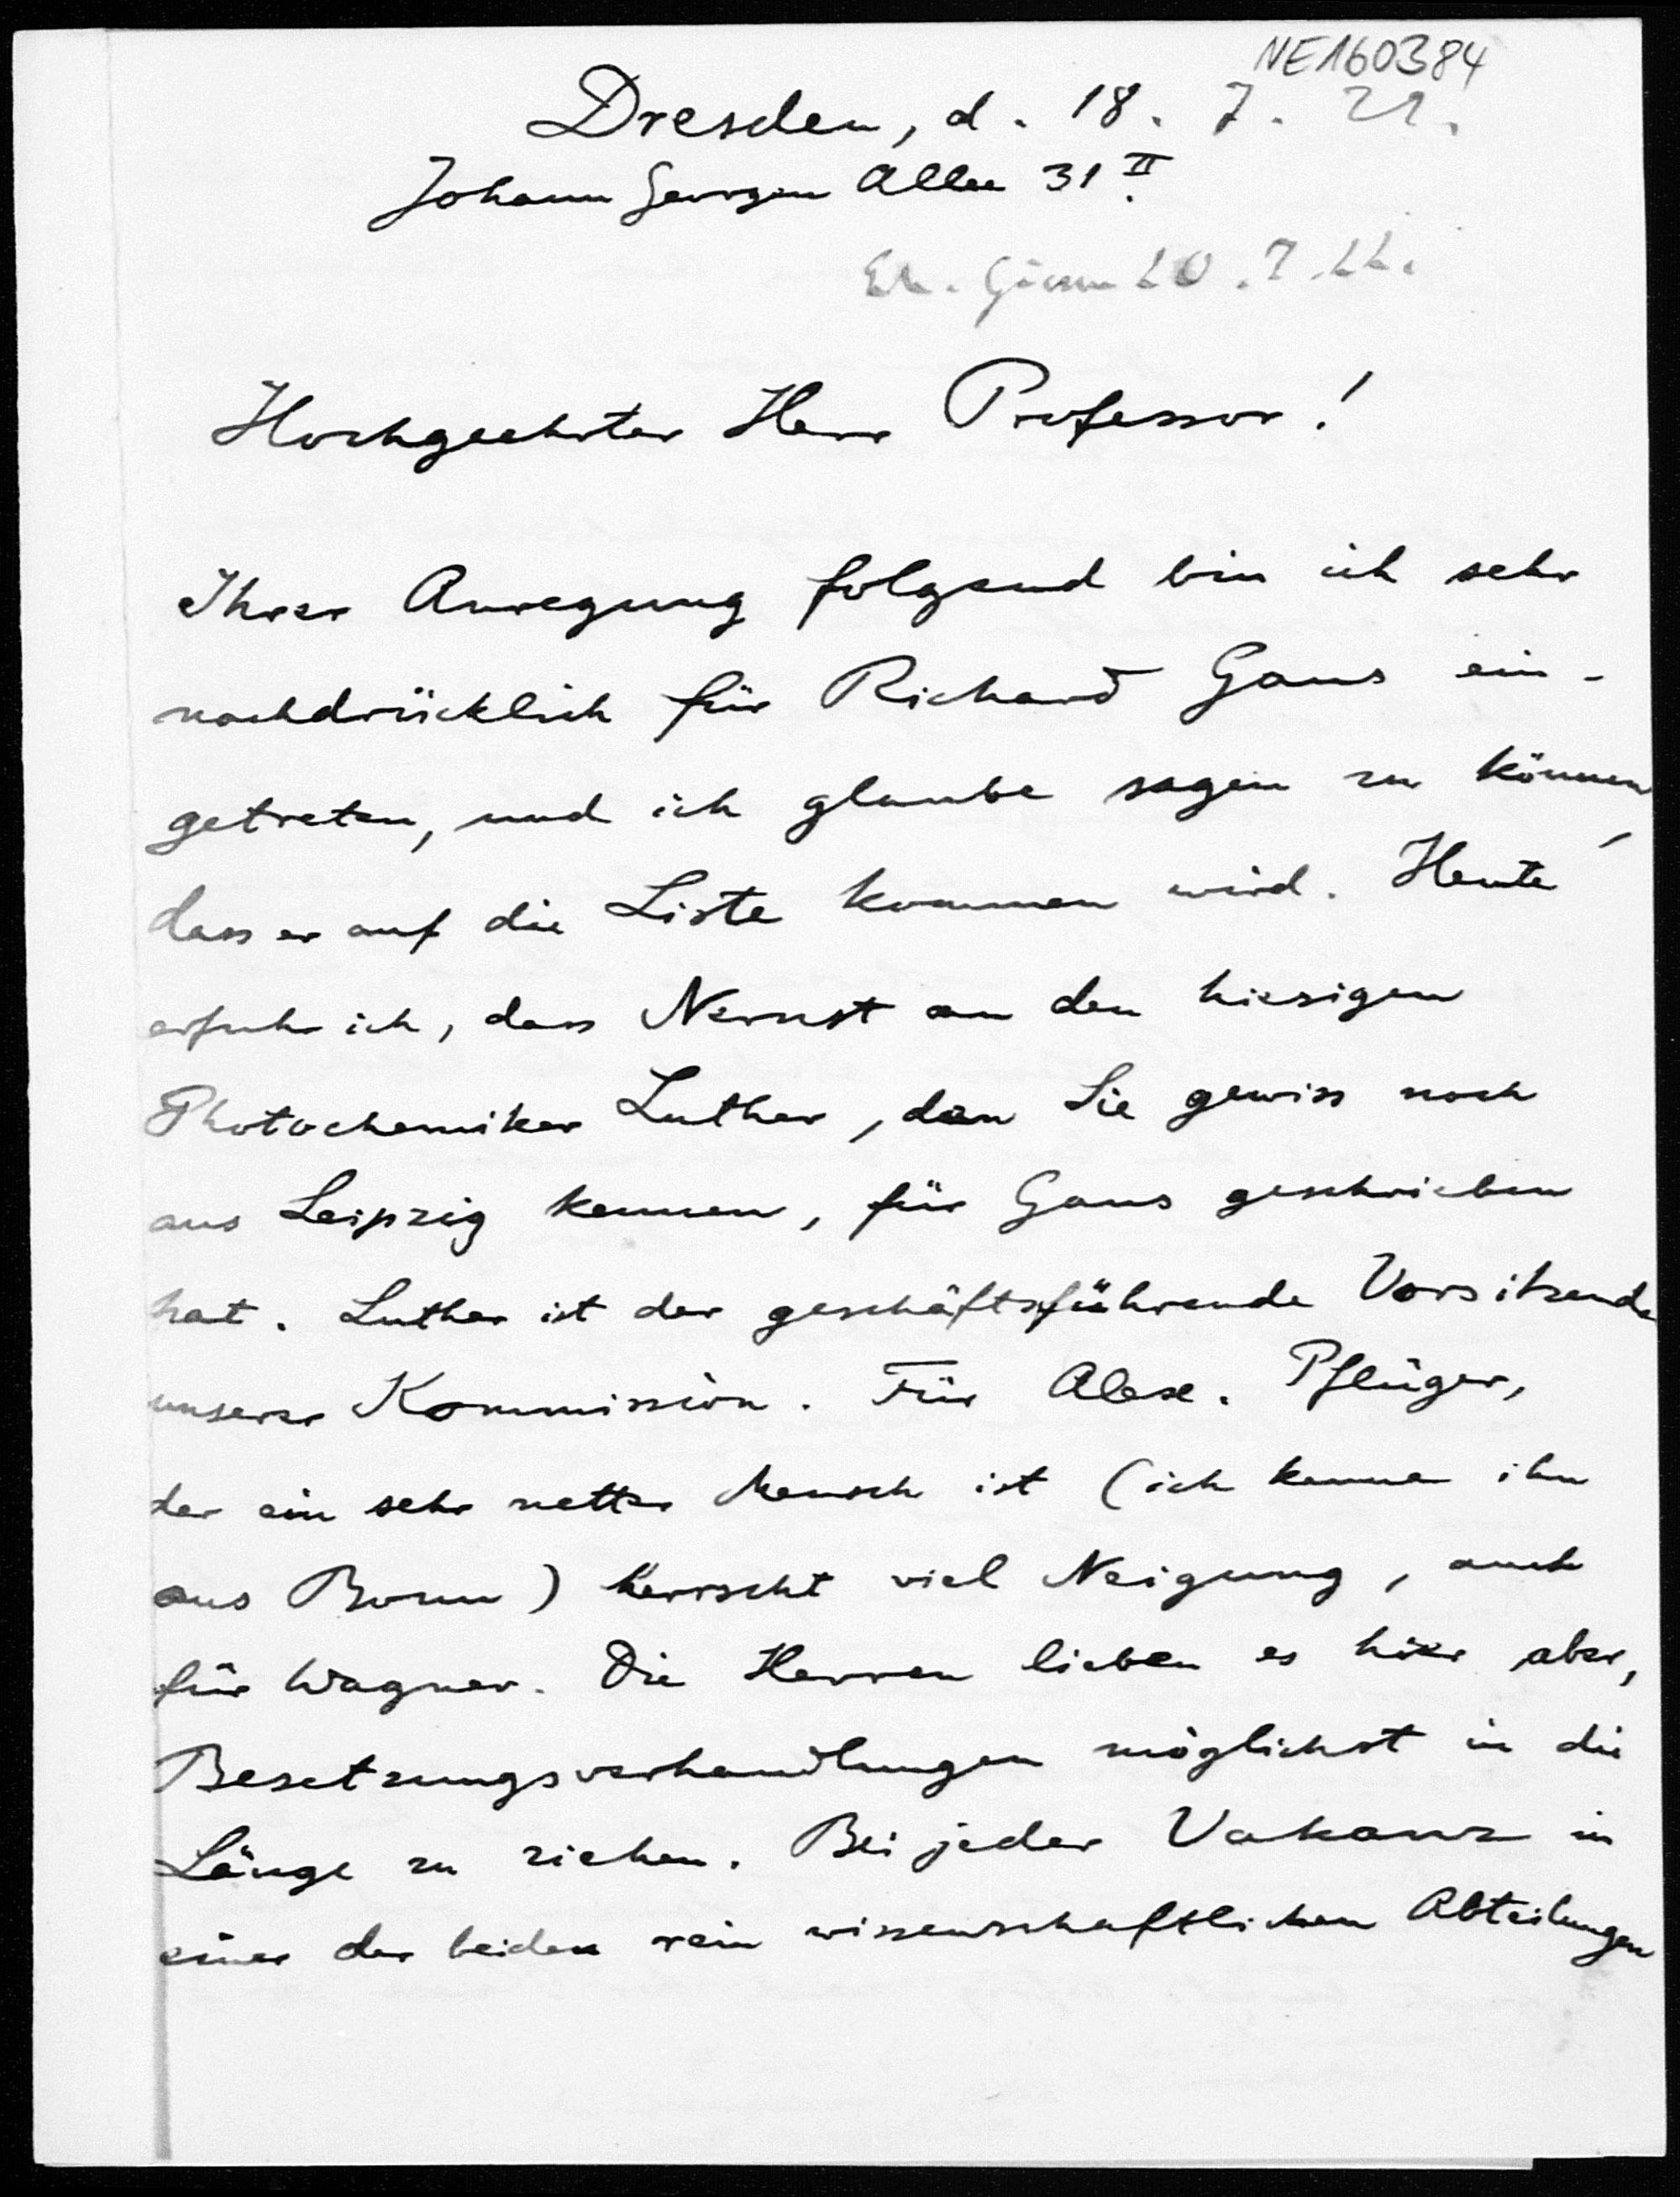 NE160384
Dresden, d. 18. 7. 21.
Johann Georgen Allee 31 II.
20. 7. 22.
Hochgeehrter Herr Professor!
Ihrer Anregung folgend bin ich sehr
nachdrücklich für Richard Gans ein-
getreten, und ich glaube sagen zu können,
dass er auf die Liste kommen wird. Heute
erfuhr ich, dass Nernst an den hiesigen
Photochemiker Luther, den Sie gewiss noch
aus Leipzig kennen, für Gans geschrieben
hat. Luther ist der geschäftsführende Vorsitzende
unserer Kommission. Für Alex. Pflüger,
der ein sehr netter Mensch ist (ich kenne ihn
aus Bonn) herrscht viel Neigung, auch
für Wagner. Die Herren lieben es hier aber,
Besetzungsverhandlungen möglichst in die
Länge zu ziehen. Bei jeder Vakanz in
einer der beiden rein wissenschaftlichen Abteilungen